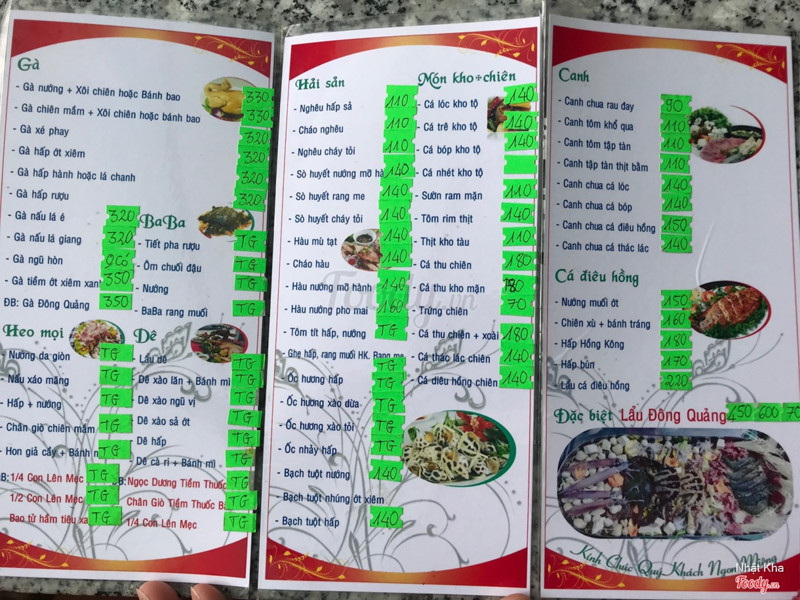 Gà
- Gà nướng + Xôi chiên hoặc Bánh bao 330
- Gà chiên mắm + Xôi chiên hoặc bánh bao 330
- Gà xé phay 320
- Gà hấp ớt xiêm 320
- Gà hấp hành hoặc lá chanh 320
- Gà hấp rượu 320
- Gà nấu lá é 320
- Gà nấu lá giang 320
- Gà ngũ hòn
- Gà tiềm ớt xiêm xanh 350
ĐB: Gà Đông Quảng 350
BaBa
- Tiết pha rượu TG
- Ôm chuối đậu TG
- Nướng TG
- BaBa rang muối TG
Heo mọi
- Nướng da giòn TG
- Nấu xáo măng TG
- Hấp + nướng TG
- Chân giò chiên mắm TG
- Hon giả cầy + Bánh TG
B: 1/4 Con Lên Mẹc TG
1/2 Con Lên Mẹc TG
Bao tử hầm tiêu TG
Dê
- Lẩu dê TG
- Dê xào lăn + Bánh mì TG
- Dê xào ngũ vị TG
- Dê xào sả ớt TG
- Dê hấp TG
- Dê cà ri + Bánh mì TG
B: Ngọc Dương Tiềm Thuốc TG
Chân Giò Tiềm Thuốc TG
1/4 Con Lên Mẹc TG
Hải sản
- Nghêu hấp sả 110
- Cháo nghêu 110
- Nghêu cháy tỏi 110
- Sò huyết nướng mỡ 140
- Sò huyết rang me 140
- Sò huyết cháy tỏi 140
- Hàu mù tạt 140
- Cháo hàu 140
- Hàu nướng mỡ hành 140
- Hàu nướng pho mai 160
- Tôm tít hấp, nướng TG
- Ghẹ hấp, rang muối HK, Rang me TG
- Ốc hương hấp TG
- Ốc hương xào dừa TG
- Ốc hương xào tỏi TG
- Ốc nhảy hấp TG
- Bạch tuột nướng 140
- Bạch tuột nhúng ớt xiêm
- Bạch tuột hấp 140
Món kho+chiên
- Cá lóc kho tộ 140
- Cá trê kho tộ 140
- Cá bóp kho tộ 140
- Cá nhét kho tộ
- Sườn ram mặn 110
- Tôm rim thịt 140
- Thịt kho tàu 110
- Cá thu chiên 180
- Cá thu kho mặn 180
- Trứng chiên 70
- Cá thu chiên + xoài 180
- Cá thác lác chiên 140
- Cá diêu hồng chiên 140
Canh
- Canh chua rau đay 90
- Canh tôm khổ qua 110
- Canh tôm tập tàn 110
- Canh tập tàn thịt bằm 110
- Canh chua cá lóc 140
- Canh chua cá bóp 140
- Canh chua cá diêu hồng 150
- Canh chua cá thác lác 140
Cá diêu hồng
- Nướng muối ớt 150
- Chiên xù + bánh tráng 160
- Hấp Hồng Kông 180
- Hấp bùn 170
- Lẩu cá diêu hồng 220
Đặc biệt Lẩu Đông Quảng 450 600 70
Kính Chúc Quý Khách Ngon Miệng
Foody.vn
Nhật Kha
Foody.vn